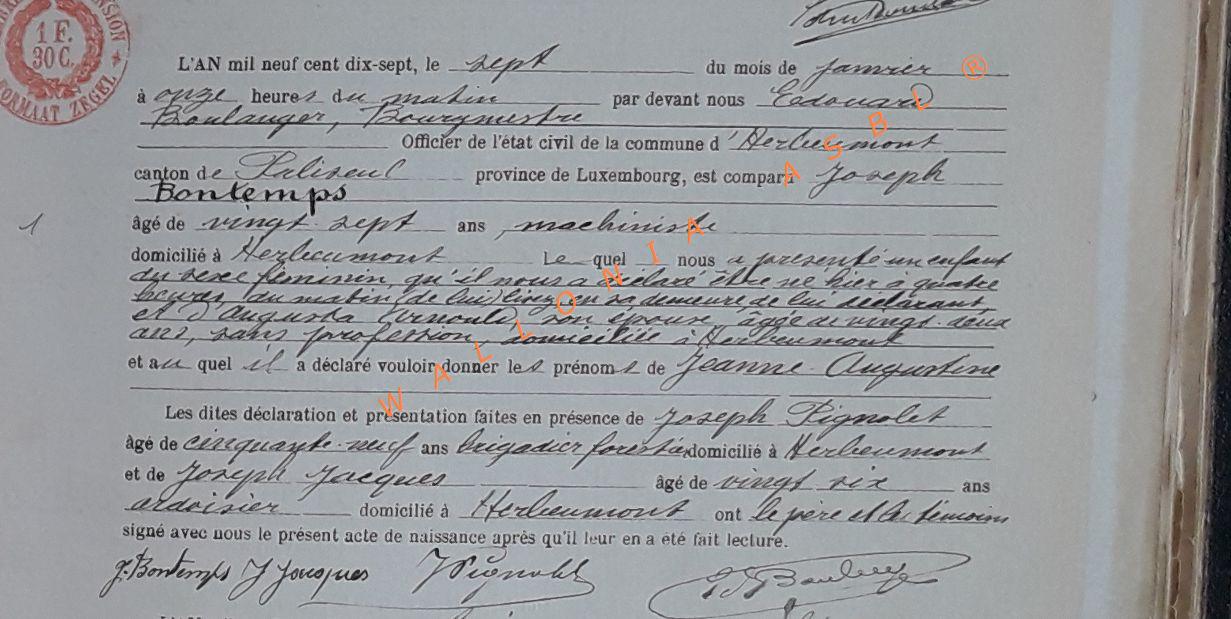 1 F.
30 C.
FORMAAT ZEGEL
L'AN mil neuf cent dix-sept, le sept du mois de janvier
à onze heures du matin par devant nous Edouard
Boulanger, Bourgmestre
Officier de l'état civil de la commune d'Herbeumont
canton de Paliseul province de Luxembourg, est comparu Joseph
Bontemps
1
âgé de vingt-sept ans, machiniste
domicilié à Herbeumont Le quel nous a présenté un enfant
du sexe féminin, qu'il nous a déclaré être né hier à quatre
heures du matin (de lui) en sa demeure, de lui déclarant
et d'Augusta son épouse, âgée de vingt-deux
ans, sans profession, domiciliée à Herbeumont
et au quel il a déclaré vouloir donner les prénoms de Jeanne Augustine
Les dites déclaration et présentation faites en présence de Joseph Pignolet
âgé de cinquante-neuf ans brigadier forestier domicilié à Herbeumont
et de Joseph Jacques âgé de vingt six ans
ardoisier domicilié à Herbeumont ont le père et les témoins
signé avec nous le présent acte de naissance après qu'il leur en a été fait lecture.
J. Bontemps J Jacques J Pignolet Ed Boulanger
WALLONIA ASBL ®